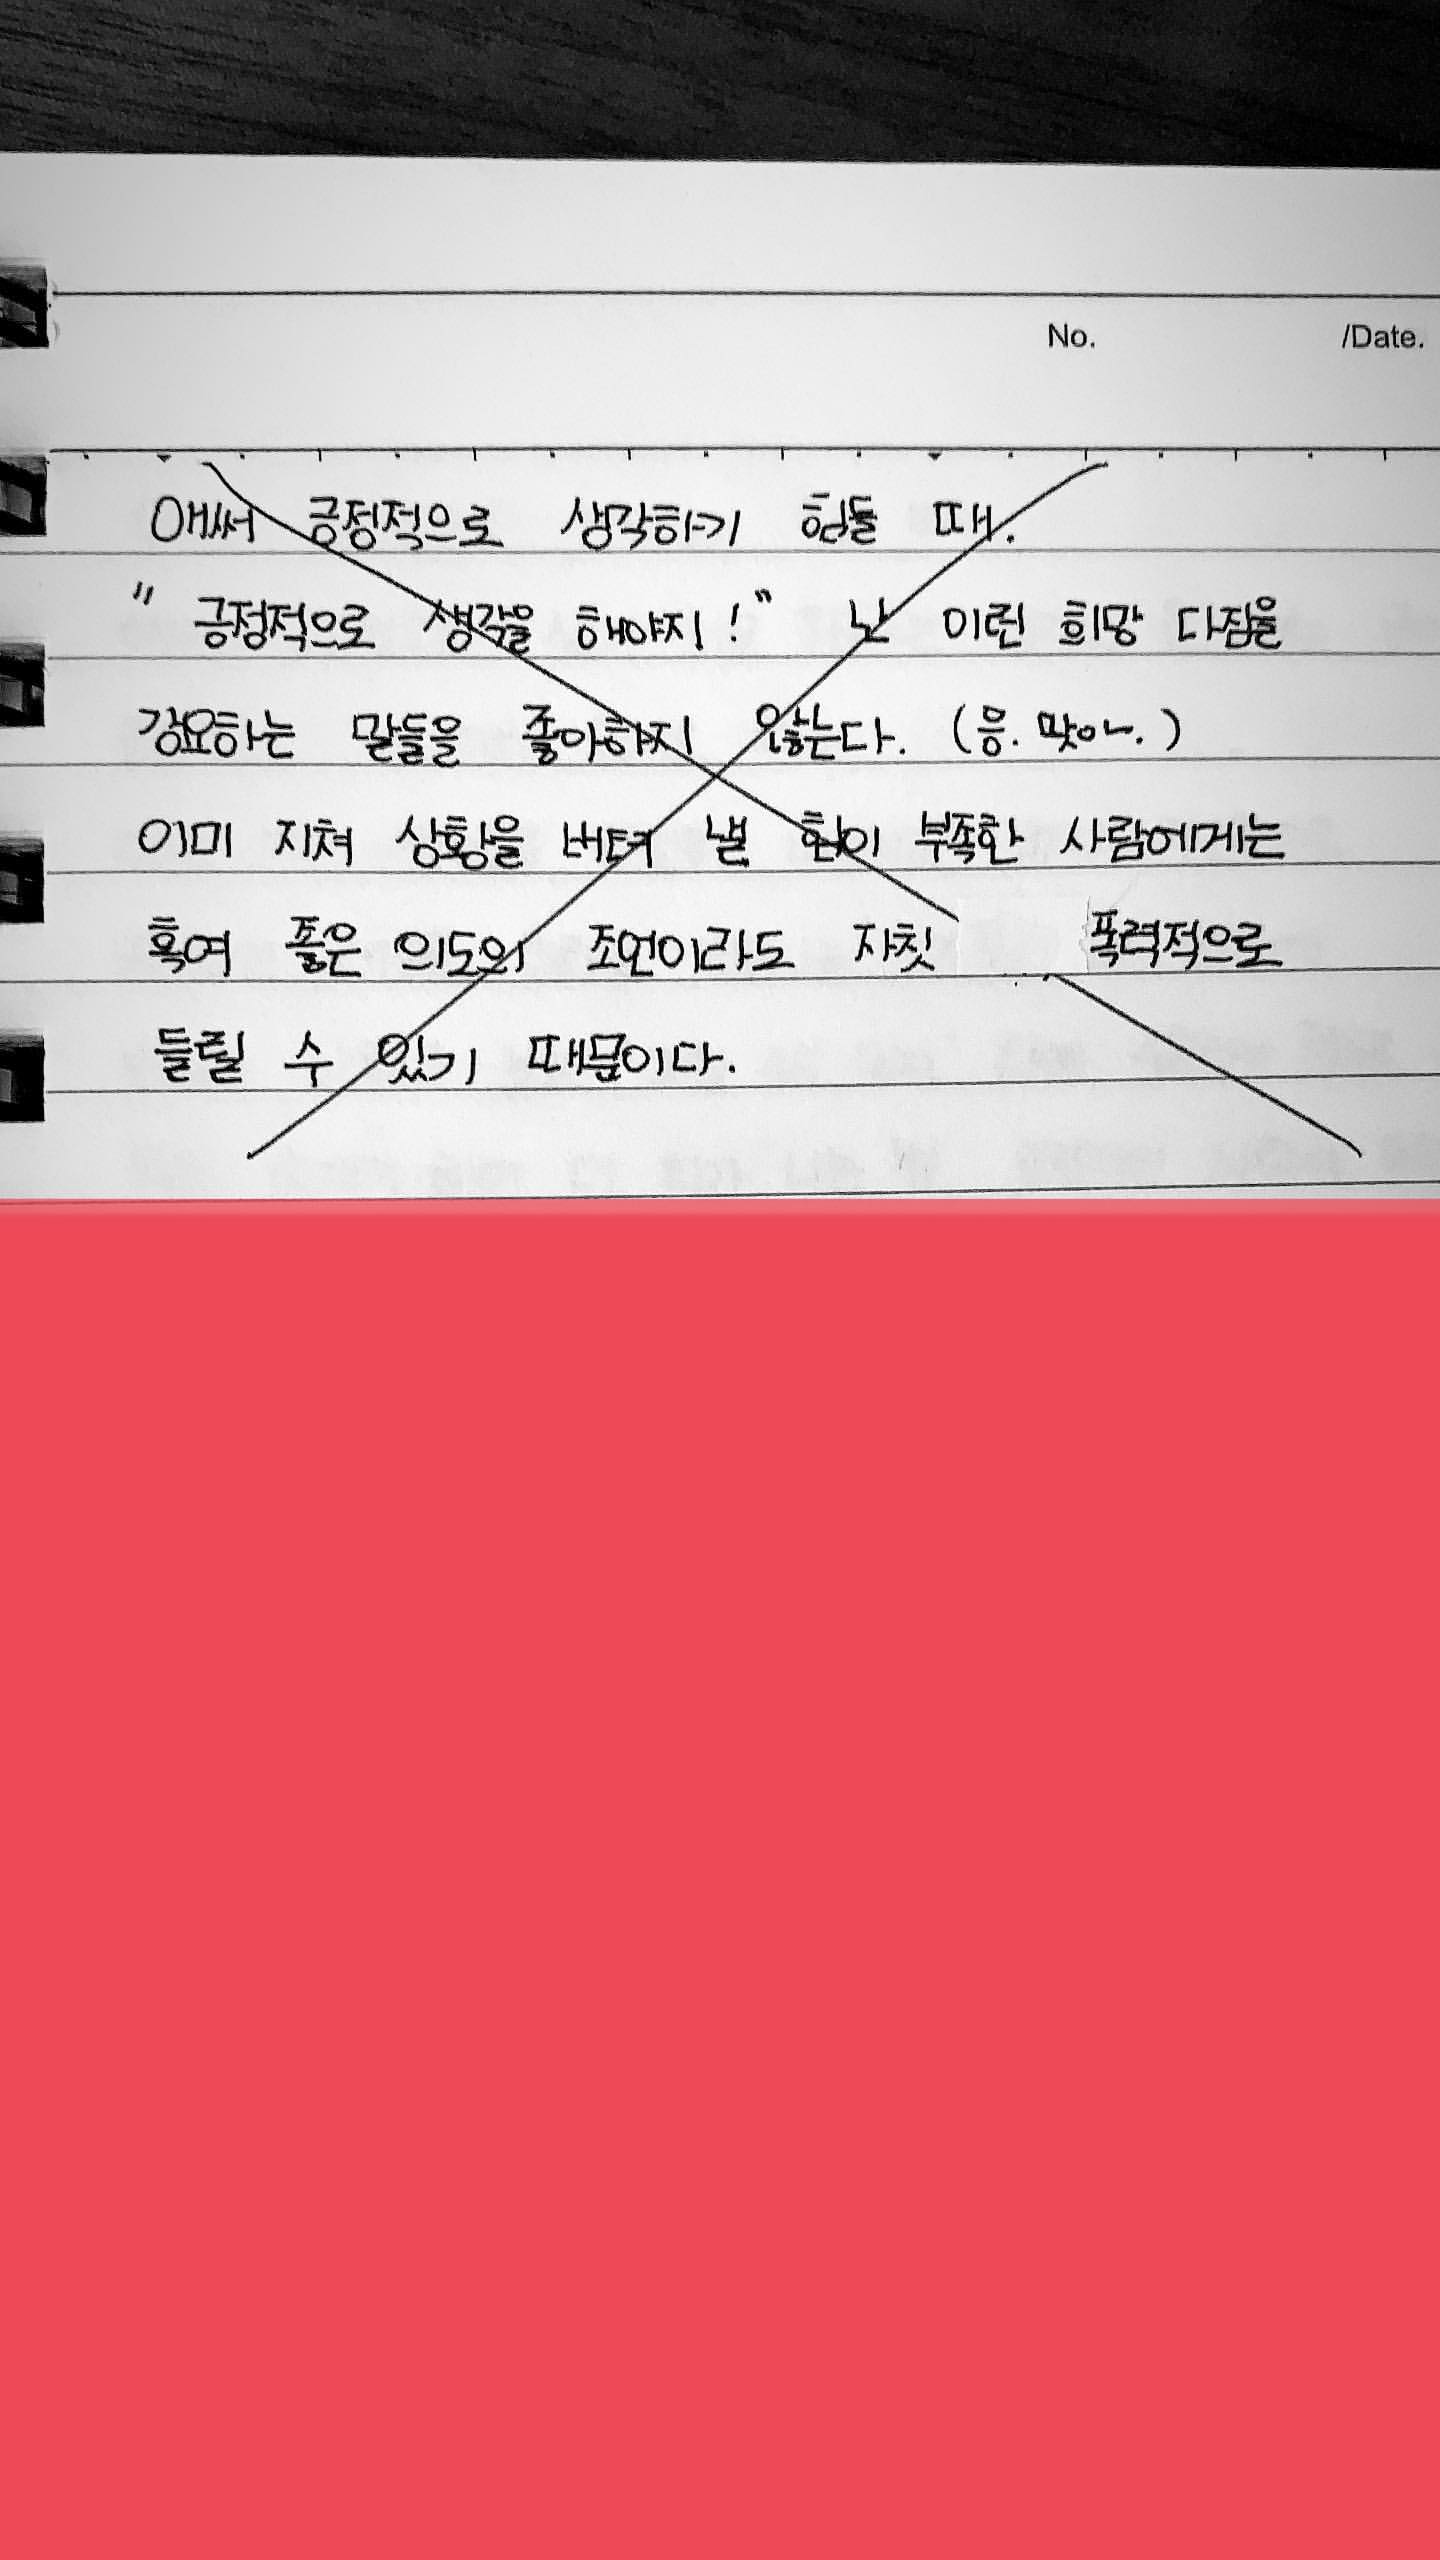 No. /Date.
애써 긍정적으로 생각하기 힘들 때.
"긍정적으로 생각을 해야지!" 난 이런 희망 다짐을
강요하는 말들을 좋아하지 않는다. (응. 맞아~.)
이미 지쳐 상황을 버텨 낼 힘이 부족한 사람에게는
혹여 좋은 의도의 조언이라도 자칫 폭력적으로
들릴 수 있기 때문이다.